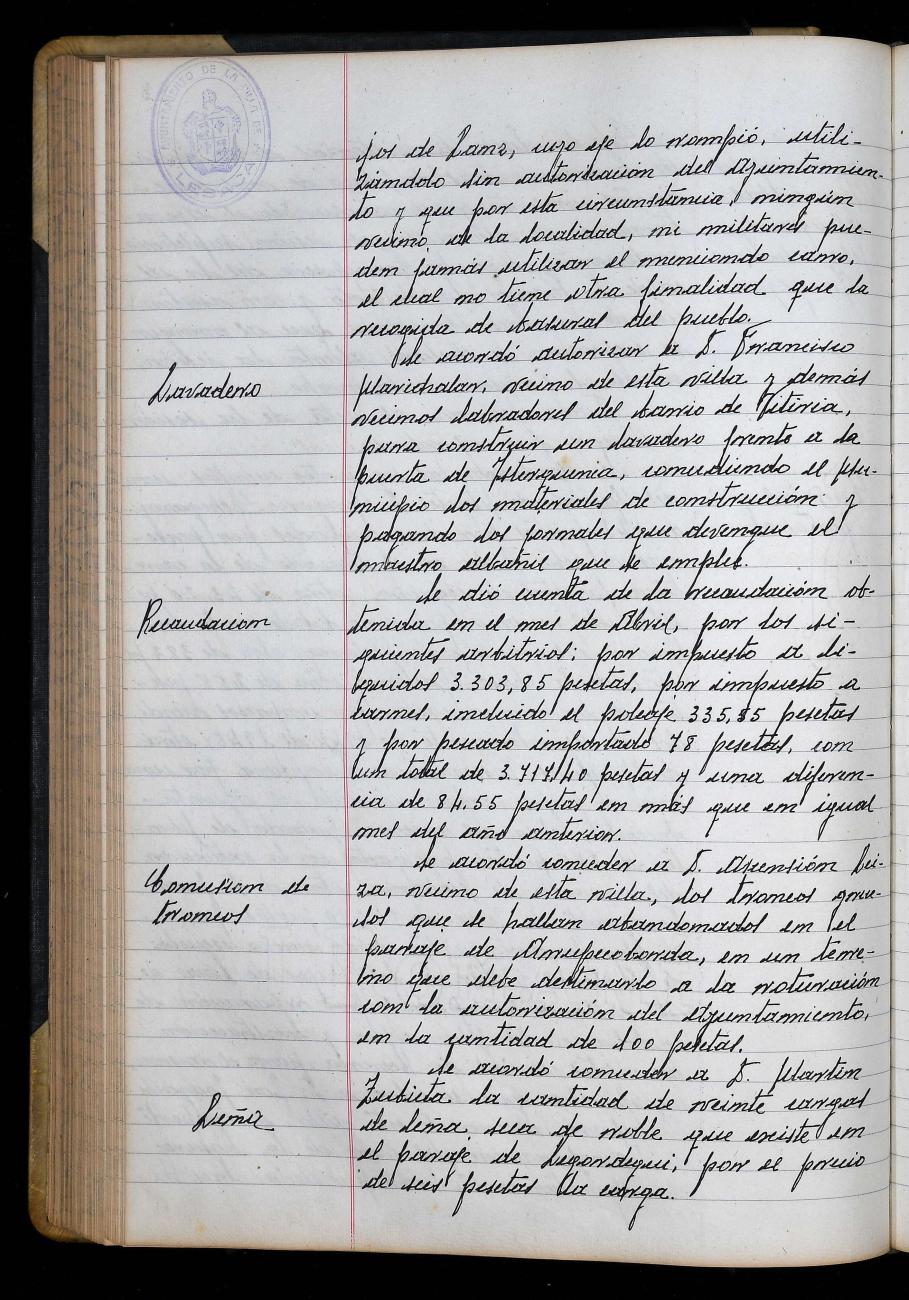 AYUNTAMIENTO DE LA VILLA DE
LESACA
jos de Lanz, cuyo eje lo rompió, utili-
zándolo sin autorización del Ayuntamien-
to y que por esta circunstancia, ningún
vecino, de la localidad, ni militares pue-
den jamás utilizar el mencionado carro,
el cual no tiene otra finalidad que la
recogida de basuras del pueblo.
Lavadero
Se acordó autorizar a D. Francisco
Marichalar, vecino de esta villa y demás
vecinos labradores del barrio de
para construir un lavadero frente a la
puerta de concediendo el Mu-
nicipio los materiales de construcción y
pagando los jornales que devengue el
maestro albañil que se emplee.
Recaudacion
Se dió cuenta de la recaudación ob-
tenida en el mes de Abril, por los si-
guientes arbitrios; por impuesto a li-
quidos 3.303,85 pesetas, por impuesto a
carnes, incluido el poleaje 335,55 pesetas
y por pescado importado 78 pesetas, con
un total de 3.717,40 pesetas y una diferen-
cia de 84.55 pesetas en más que en igual
mes del año anterior.
Concesion de
troncos
Se acordó conceder a D. Asensión Lei-
za, vecino de esta villa, los troncos grue-
sos que se hallan abandonados en el
paraje de en un terre-
no que debe destinarlo a la roturación
con la autorización del Ayuntamiento,
en la cantidad de 100 pesetas.
Leña
Se acordó conceder a D. Martin
Zubieta la cantidad de veinte cargas
de leña seca de roble que existe en
el paraje de Legordegui, por el precio
de seis pesetas la carga.